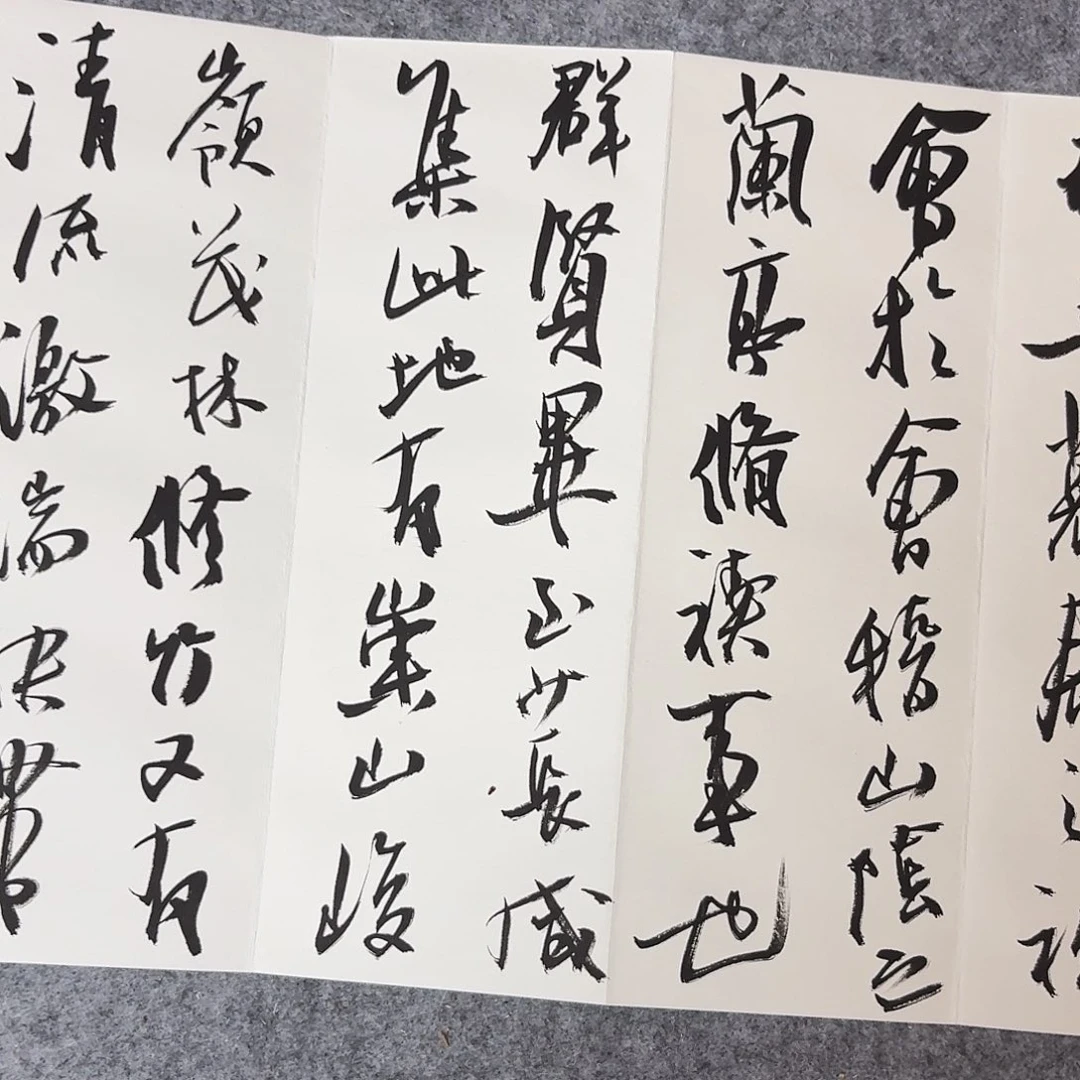 暮春之初
會於會稽山陰之
蘭亭脩禊事也
群賢畢至少長咸
集此地有崇山峻
嶺茂林修竹又有
清流激湍映帶